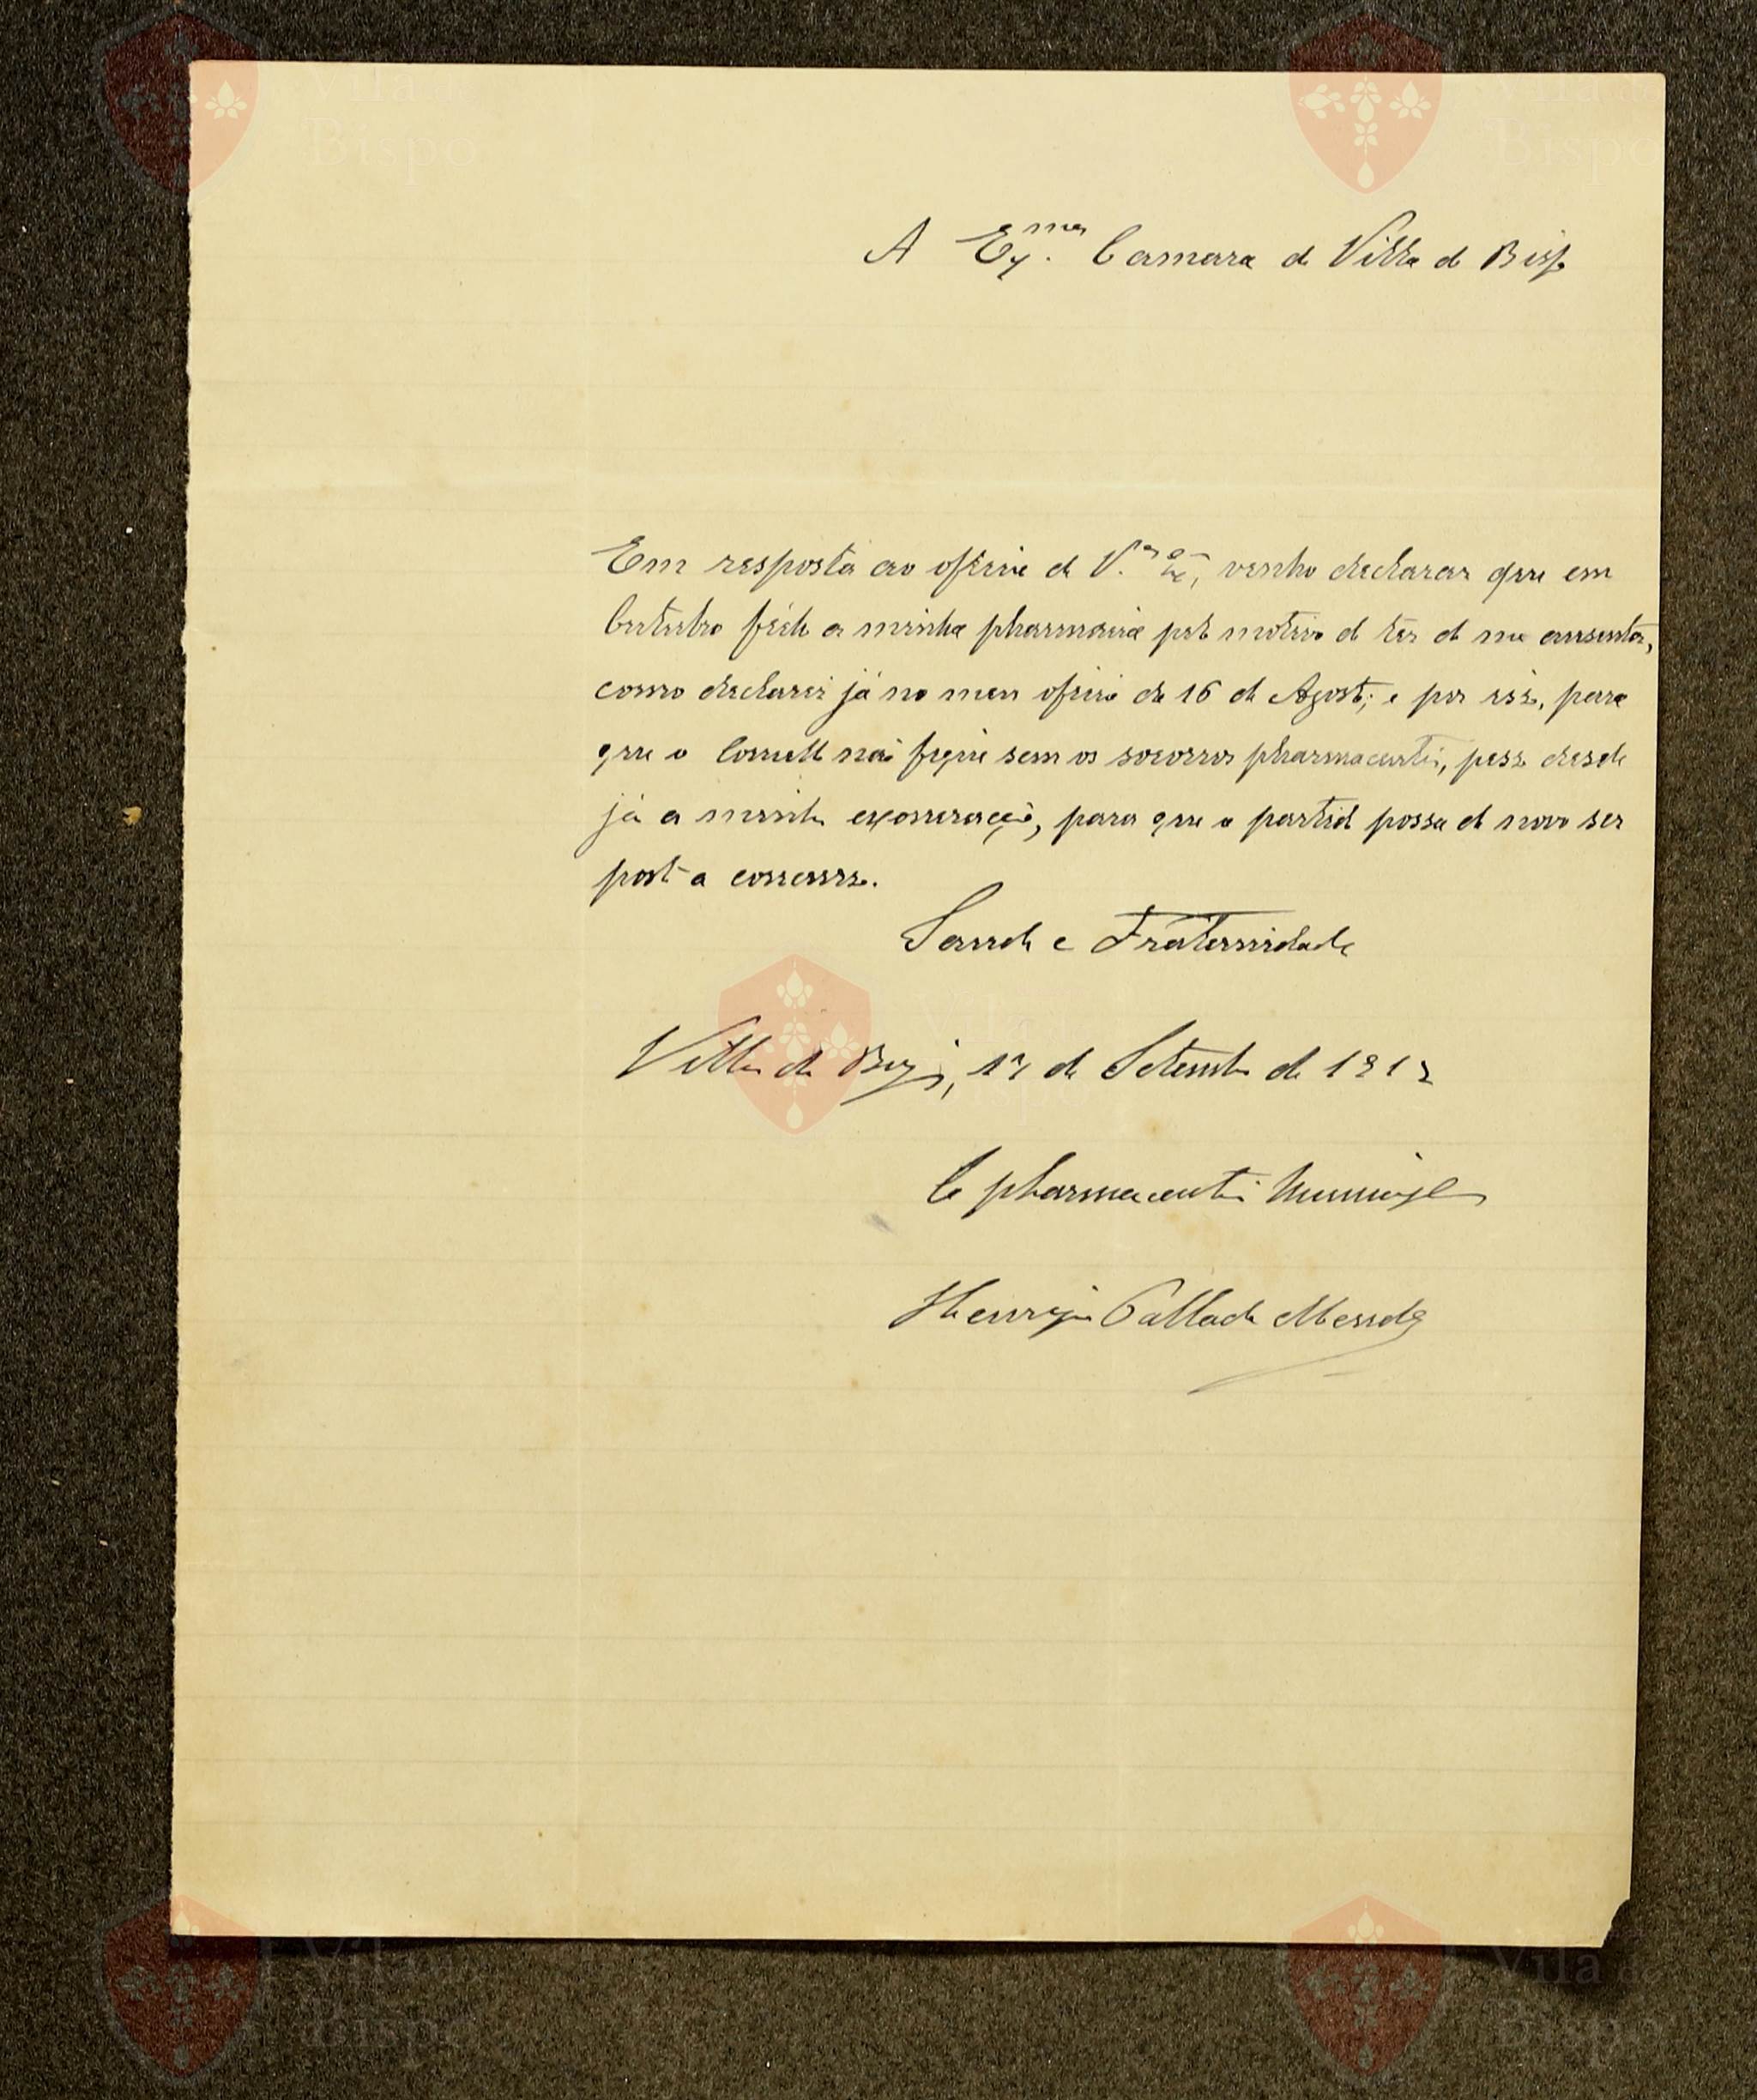 A Ex.ma Camara de Villa do Bispo
Em resposta ao oficio de V.as Ex.as, venho declarar que em
Outubro fecho a minha pharmacia pelo motivo de ter de me ausentar,
como declarei já no meu oficio de 16 de Agosto; e por isso, para
que o Concelho não fique sem os socorros pharmaceuticos, peço desde
já a minha exoneração, para que o partido possa de novo ser
posto a concurso.
Saude e Fraternidade
Villa do Bispo, 17 de Setembro de 1912
O pharmaceutico Municipal
Henrique Callado Mendes
Vila do
Bispo
Vila do
Bispo
Vila do
Bispo
Vila do
Bispo
Vila do
Bispo